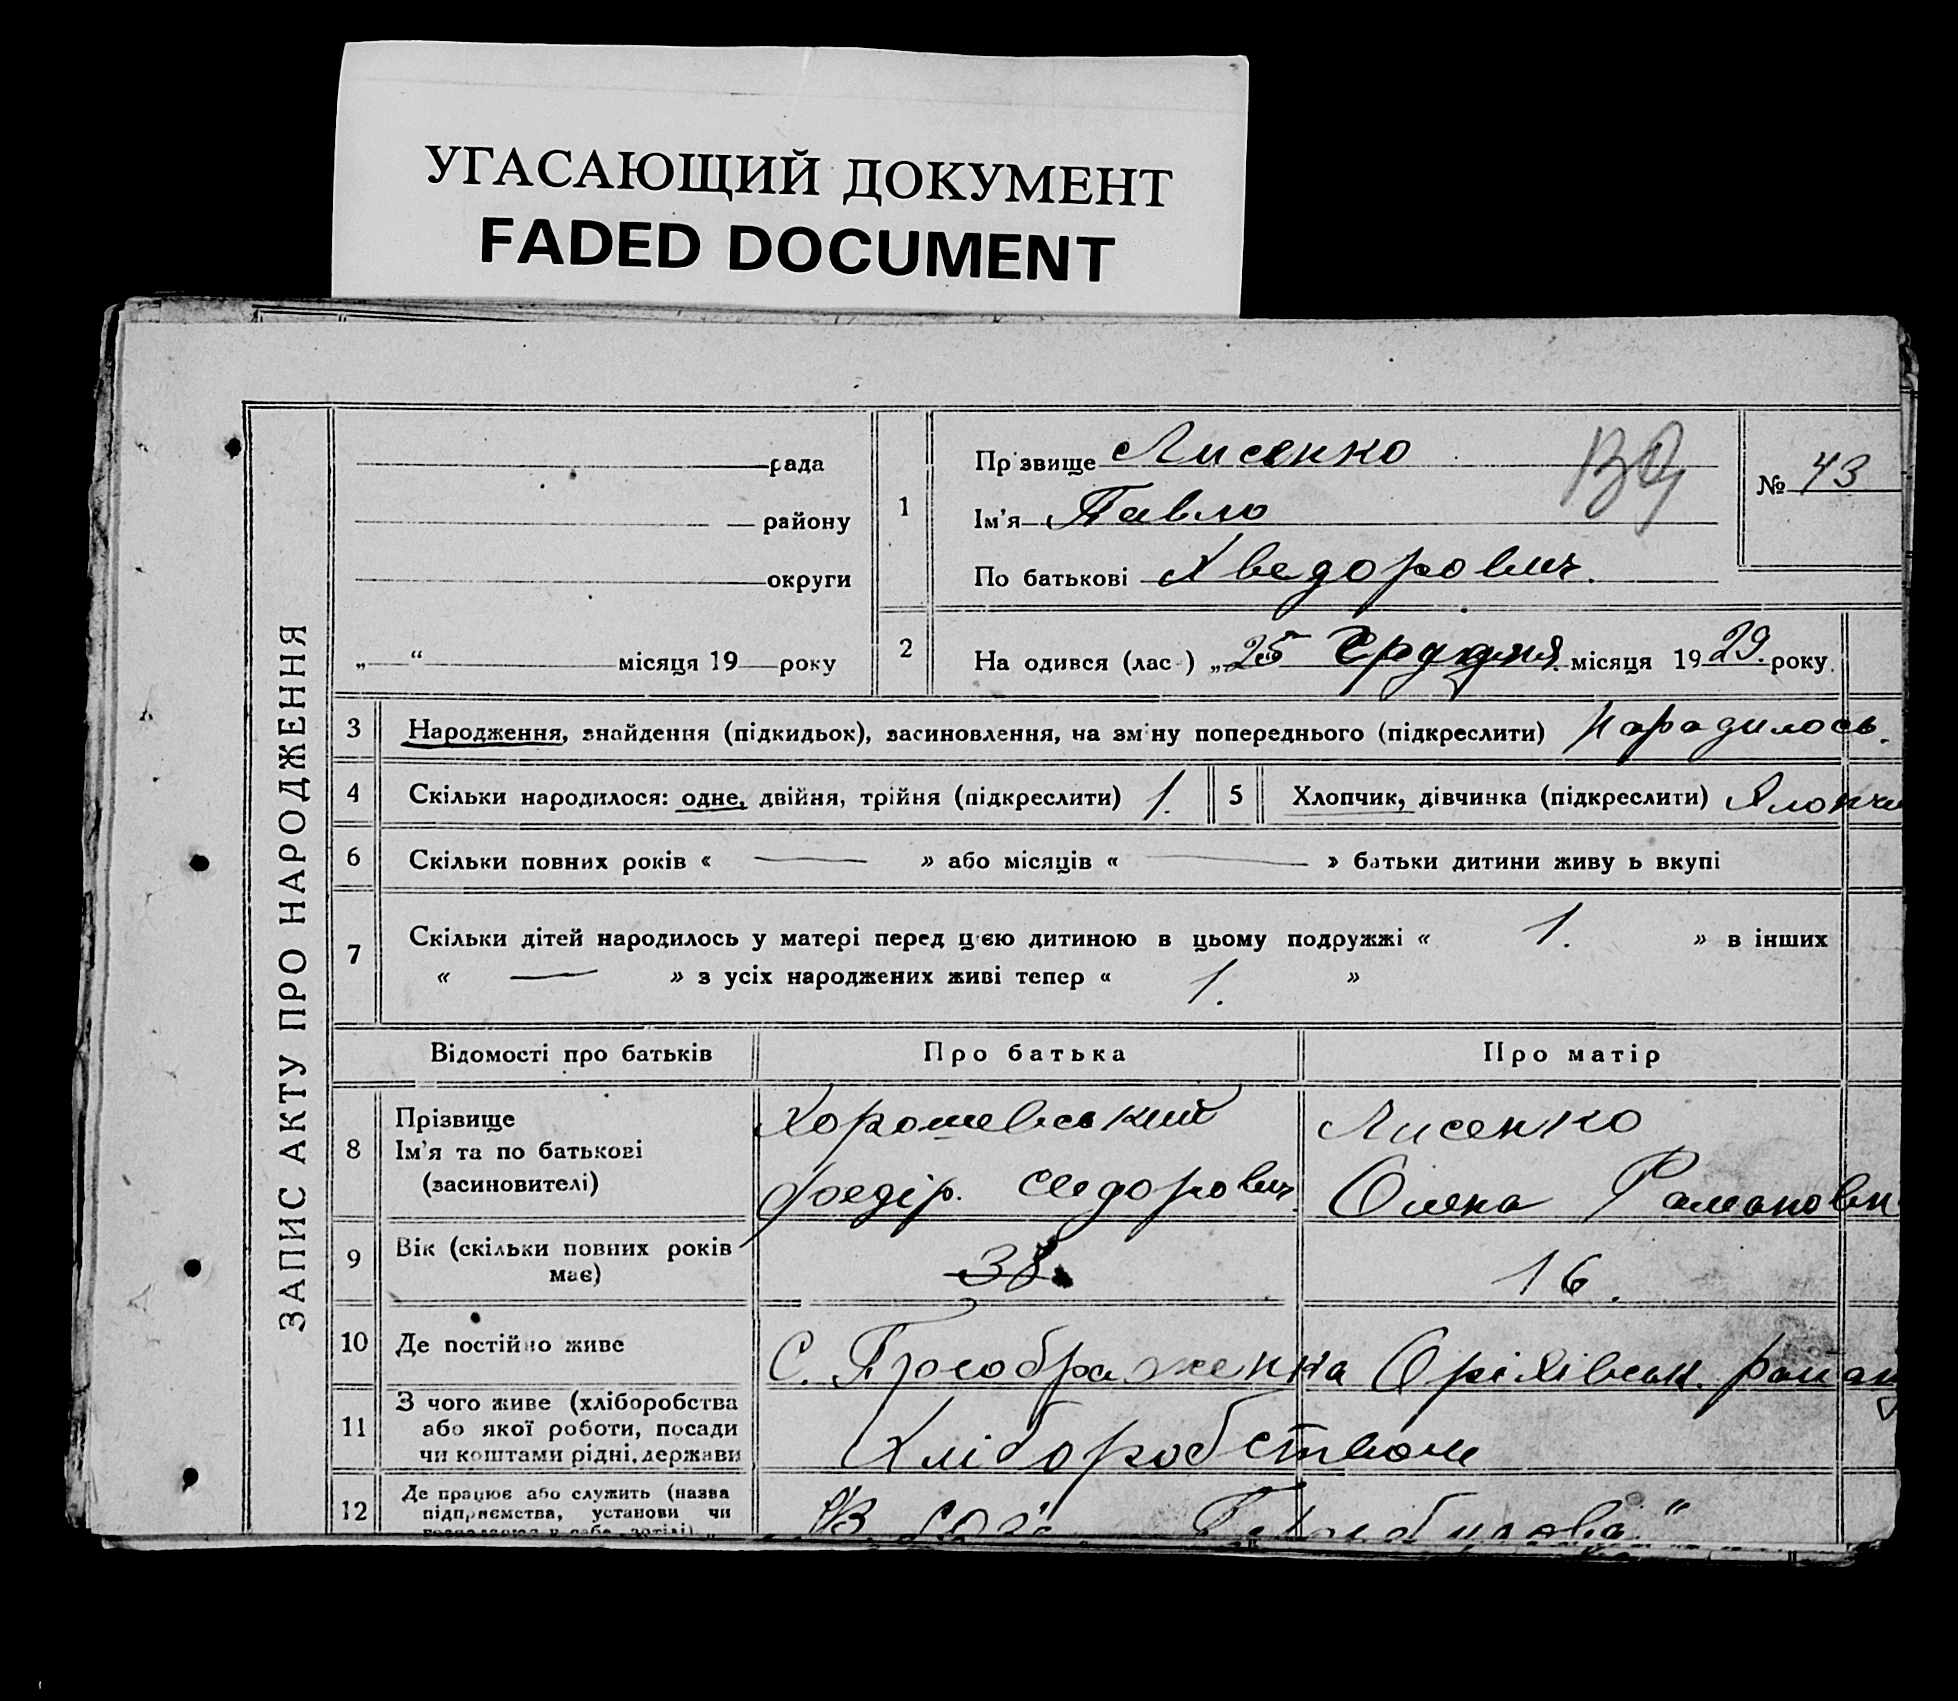 УГАСАЮЩИЙ ДОКУМЕНТ
FADED DOCUMENT
ЗАПИС АКТУ ПРО НАРОДЖЕННЯ
рада
району
округи
„ “ місяця 19 року
1
Пр звище Лисенко
Ім'я Павло
По батькові Хведорович.
№ 43
2
На одився (лас ) „25 Грудня місяця 1929. року.
3 Народження, знайдення (підкидьок), засиновлення, на зм ну попереднього (підкреслити) народилось.
4 Скільки народилося: одне, двійня, трійня (підкреслити) 1. 5 Хлопчик, дівчинка (підкреслити) Хлопчи
6 Скільки повних років « — » або місяців « — » батьки дитини живу ь вкупі
7 Скільки дітей народилось у матері перед цією дитиною в цьому подружжі « 1. » в інших
« — » з усіх народжених живі тепер « 1. »
Відомості про батьків Про батька Про матір
8 Прізвище
Ім'я та по батькові
(засиновителі)
Хорошевський
Федір. Сидорович.
Лисенко
Олена Романовн
9 Вік (скільки повних років
має)
38.
16.
10 Де постійно живе С. Преображенка Оріхівськ. район
11 З чого живе (хліборобства
або якої роботи, посади
чи коштами рідні, держави
Хліборобством
12 Де працює або служить (назва
підприємства, установи чи